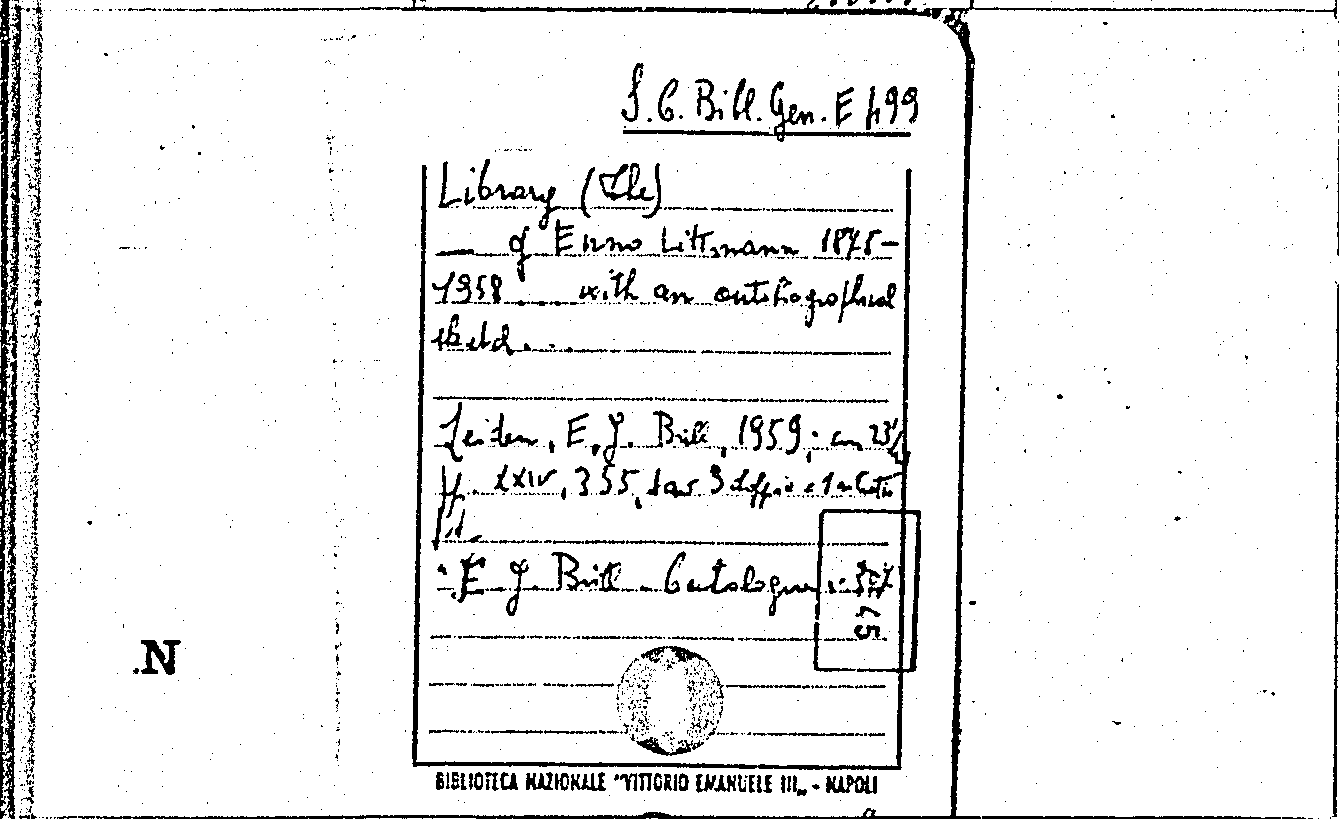 S.C. Bibl. Gen. E 499
Library (The)
— of Enno Littmann 1875-
1958 .... with an autobiographical
sketch...
Leiden, E. J. Brill, 1959; cm 23
pp. LXIV, 355, 1 av
E J. Brill. Catalogue
N.
BIBLIOTECA NAZIONALE "VITTORIO EMANUELE III„ - NAPOLI